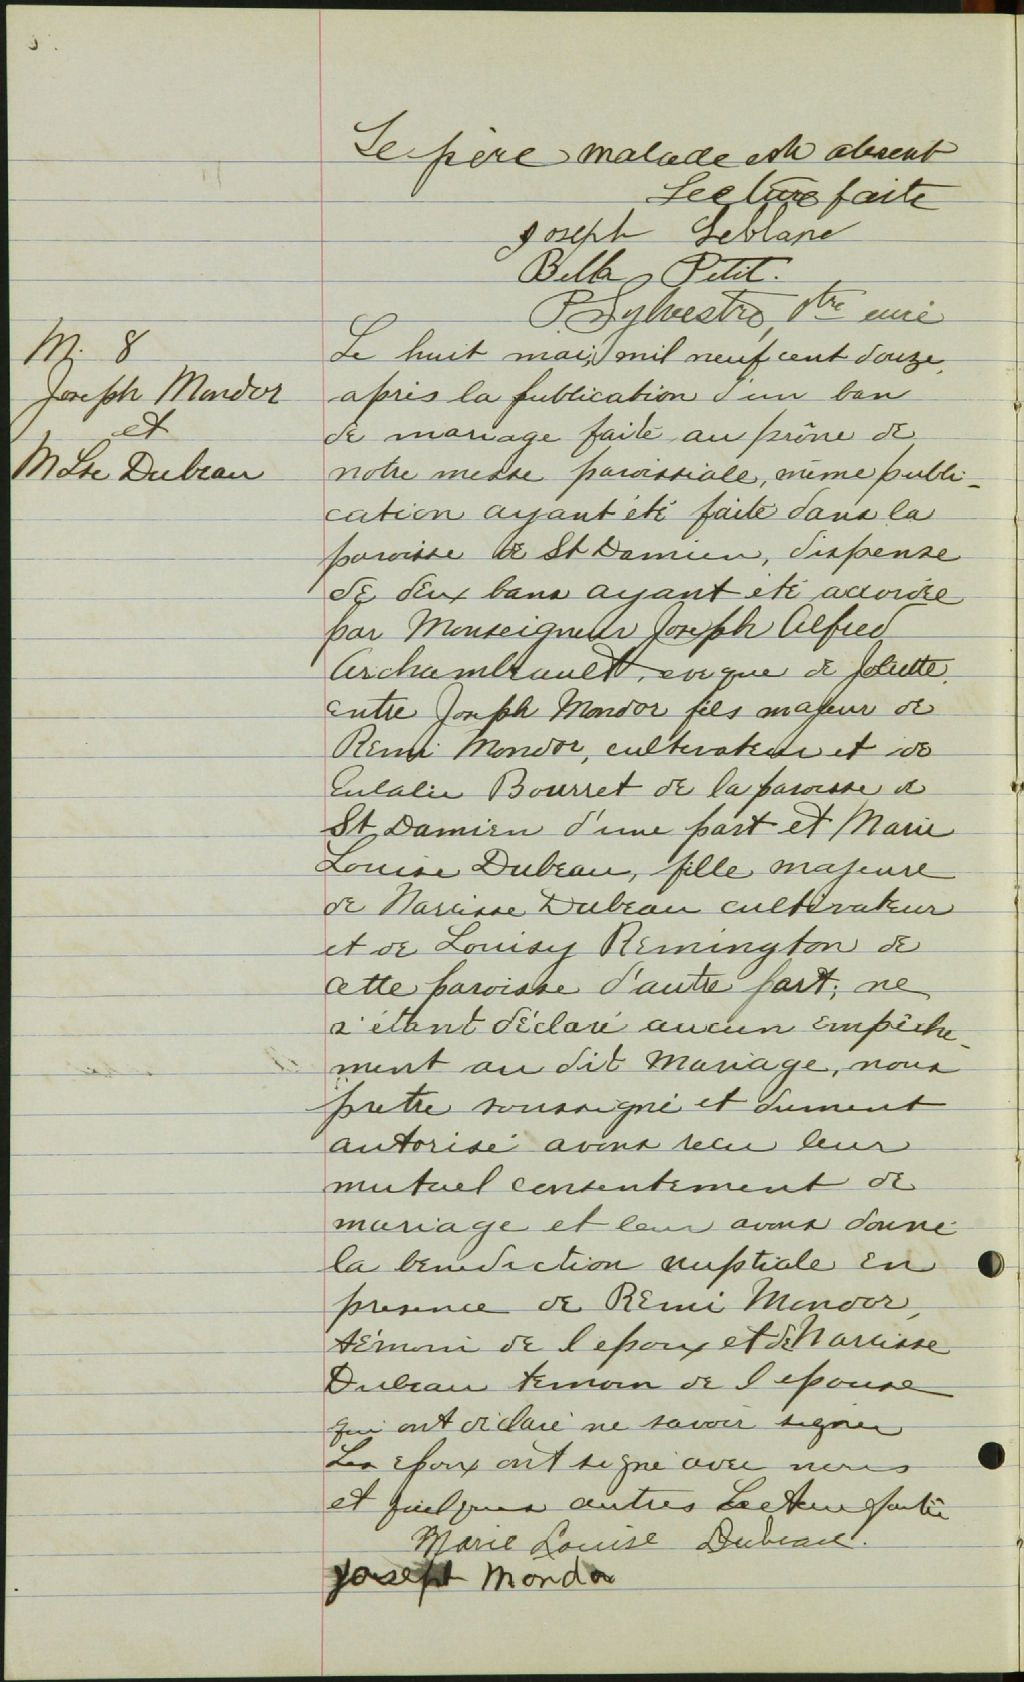 Le père malade est absent
Lecture faite
Joseph Leblanc
Bella Petit.
P. Sylvestre, Ptre curé
M. 8
Joseph Mondor
et
M Lse Dubeau
Le huit mai, mil neuf cent douze,
après la publication d'un ban
de mariage faite au prône de
notre messe paroissiale, même publi-
cation ayant été faite dans la
paroisse de St Damien, dispense
de deux bans ayant été accordée
par Monseigneur Joseph Alfred
Archambeault, eveque de Joliette,
entre Joseph Mondor fils majeur de
Remi Mondor, cultivateur et de
Eulalie Bourret de la paroisse de
St Damien d'une part et Marie
Louise Dubeau, fille majeure
de Narcisse Dubeau cultivateur
et de Louisy Remington de
cette paroisse d'autre part; ne
s'étant déclaré aucun empêche-
ment au dit mariage, nous
pretre soussigné et dument
autorisé avons recu leur
mutuel consentement de
mariage et leur avons donné
la benediction nuptiale en
presence de Remi Mondor,
témoin de l epoux et de Narcisse
Dubeau temoin de l epouse
qui ont déclaré ne savoir signer
Les epoux ont signé avec nous
et quelques autres Lecture faite
Marie Louise Dubeau.
Joseph Mondor